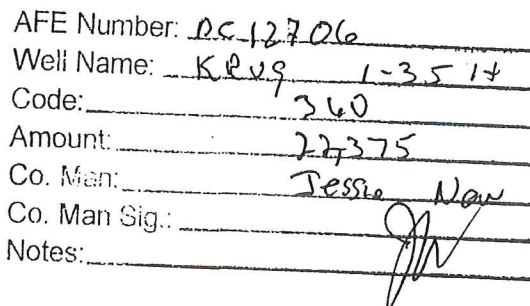 AFE Number: DC12706
Well Name: Krug 1-35 1H
Code: 340
Amount: 22,375
Co. Man: Jessie
Co. Man Sig.:
Notes: